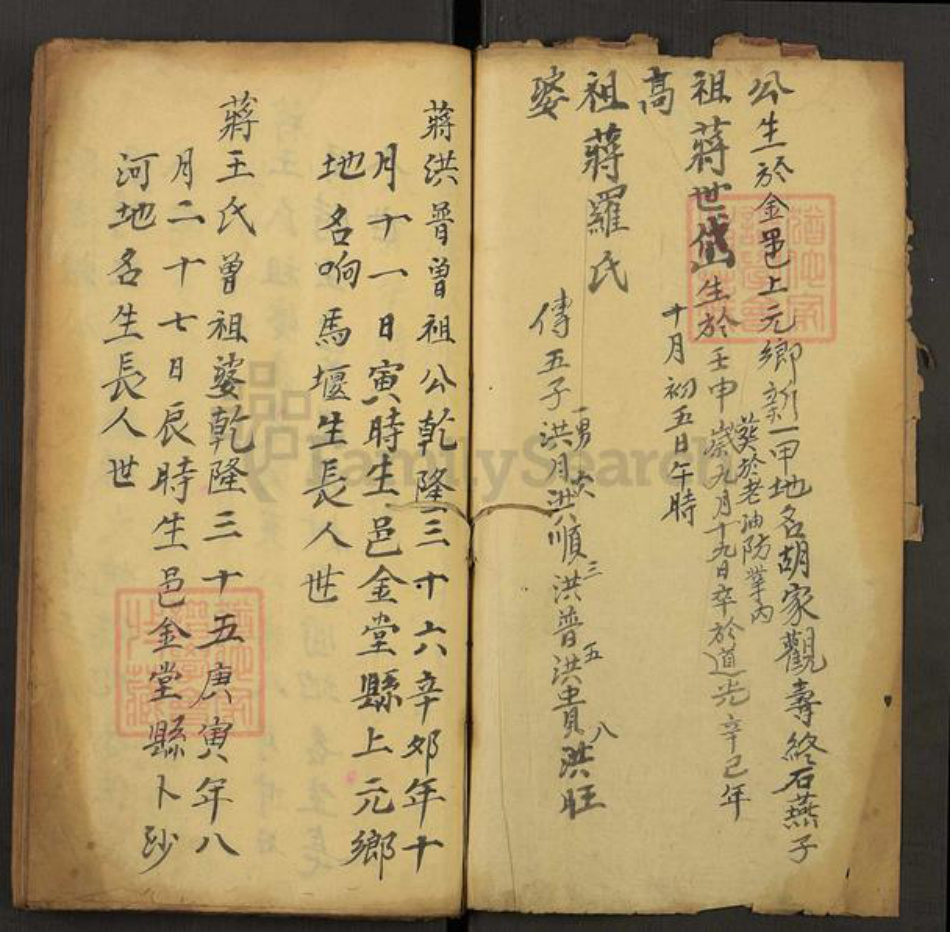 公生於金邑上元鄉新一甲地名胡家觀壽終石燕子
葬於老油防業內
祖蔣世岱生於壬申歲九月十九日卒於道光辛巳年
十月初五日午時
高
祖蔣羅氏
一男 六 三 五 八
婆傳五子洪月洪順洪普洪貴洪旺
蔣洪普曾祖公乾隆三十六辛卯年十
月十一日寅時生邑金堂縣上元鄉
地名响馬堰生長人世
蔣王氏曾祖婆乾隆三十五庚寅年八
月二十七日辰時生邑金堂縣卜
河地名生長人世
FamilySearch